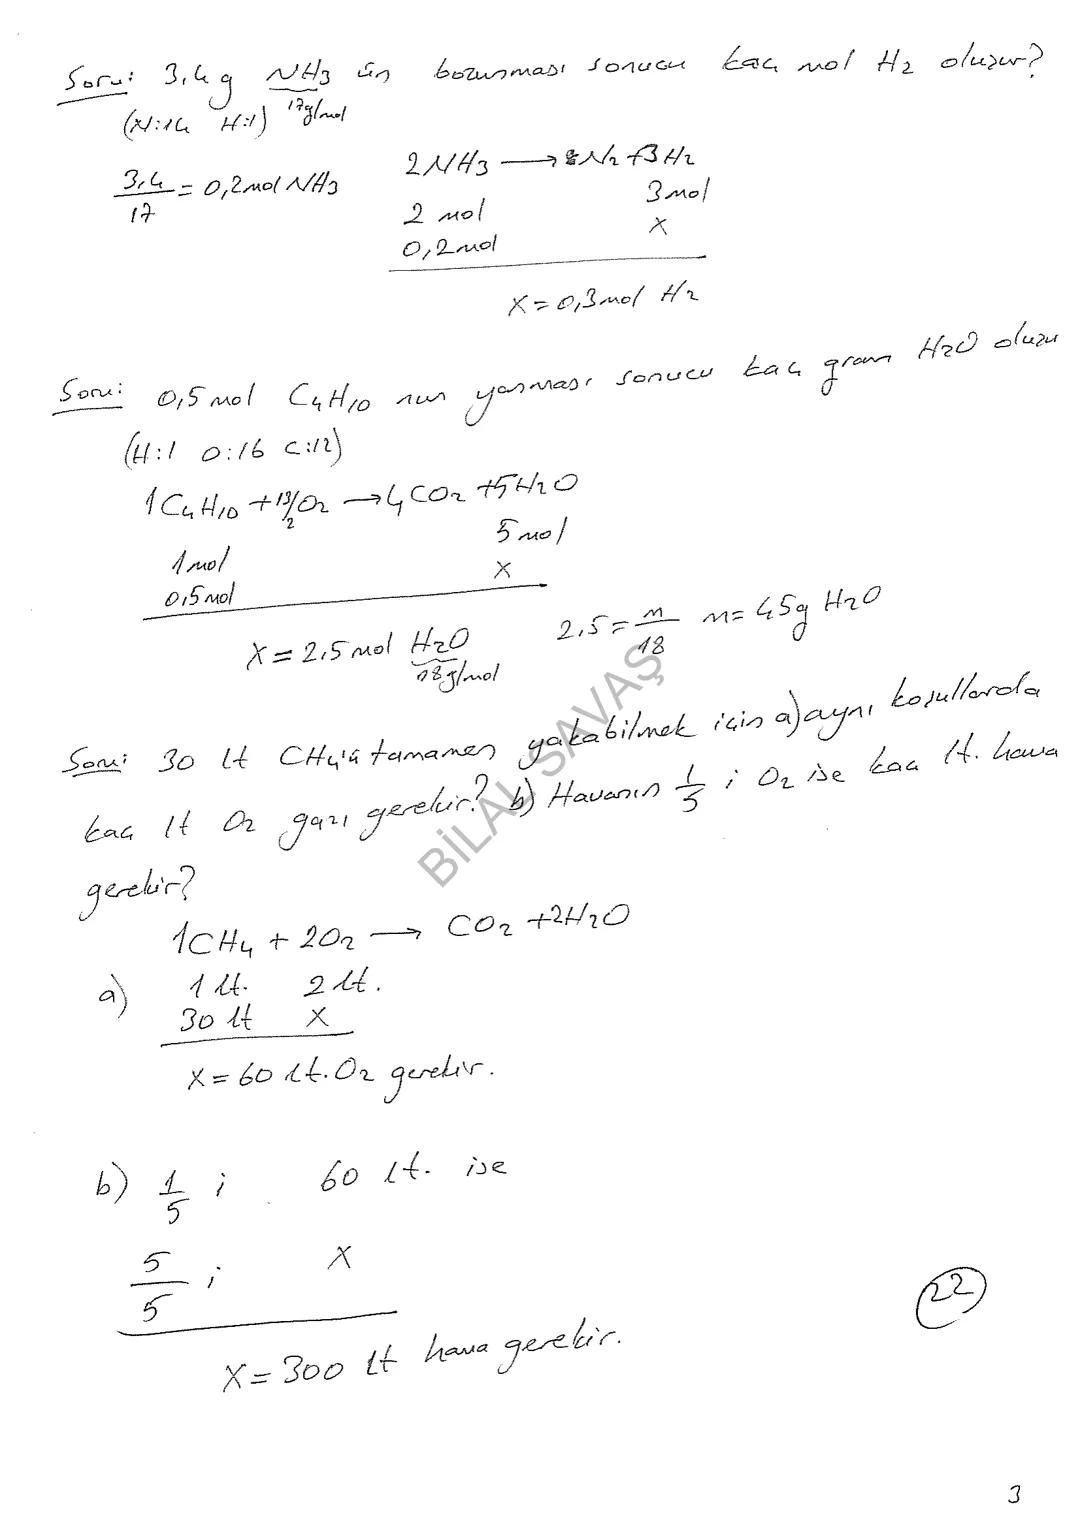 Soru: 3,4 g NH3 ün bozunması sonucu kaç mol H2 oluşur?
(N:14 H:1) 17g/mol
2NH3 → N2 + 3H2
3,4/17 = 0,2 mol NH3
2 mol 3 mol
0,2 mol X
X = 0,3 mol H2
Soru: 0,5 mol C4H10 nun yanması sonucu kaç gram H2O oluşu
(H:1 O:16 C:12)
1C4H10 + 13/2 O2 → 4CO2 + 5H2O
1 mol 5 mol
0,5 mol X
X = 2,5 mol H2O 2,5 = m/18 m = 45g H2O
18g/mol
Soru: 30 lt CH4'ü tamamen yakabilmek için a) aynı koşullarda
kaç lt O2 gazı gerekir? b) Havanın 1/5 i O2 ise kaç lt. hava
gerekir?
1CH4 + 2O2 → CO2 + 2H2O
a) 1 lt. 2 lt.
30 lt X
X = 60 lt. O2 gerekir.
b) 1/5 i 60 lt. ise
5/5 i X
X = 300 lt hava gerekir.
22
3
BİLAL SAVAŞ